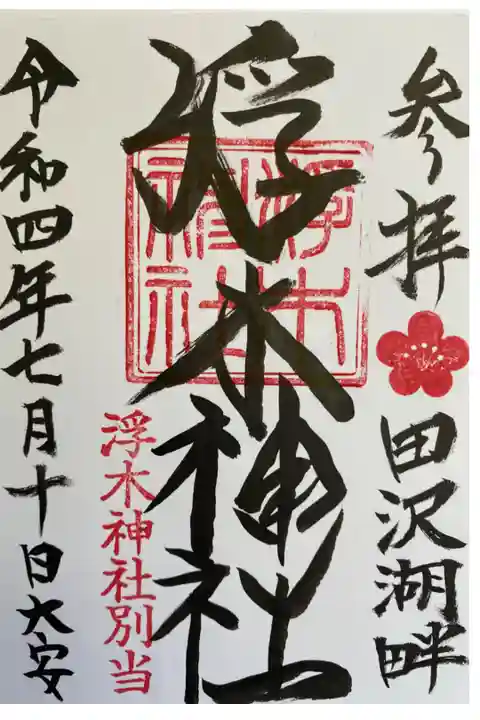 参拝
田沢湖畔
浮木神社
浮木神社別当
令和四年七月十日大安